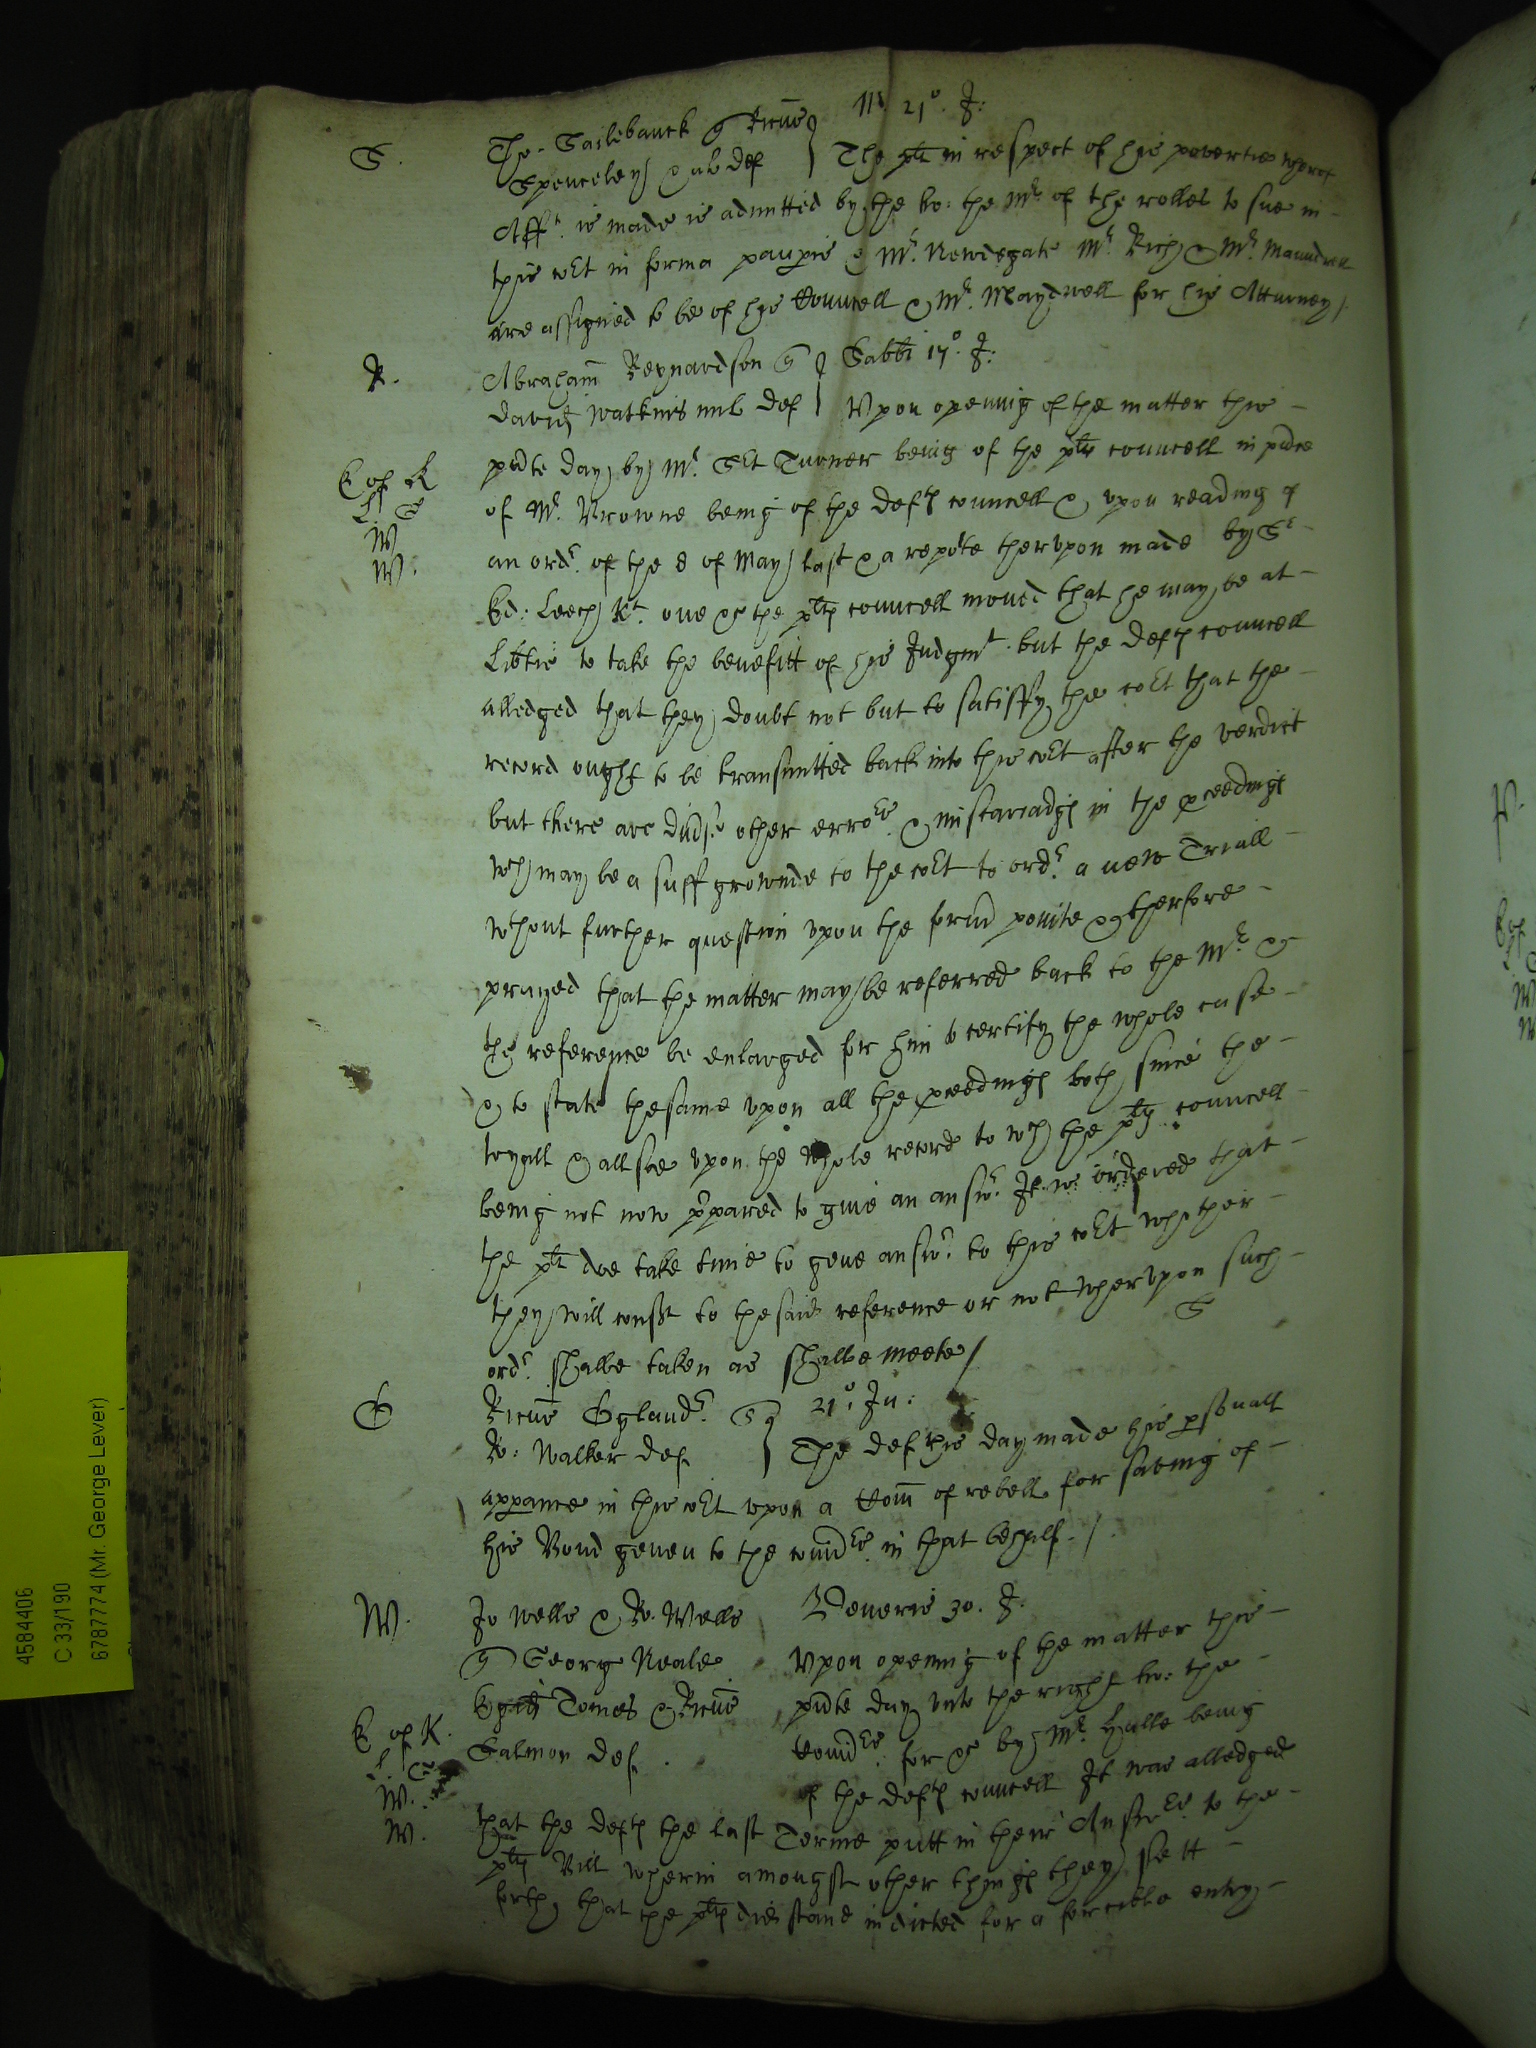 S. Tho. Sailebanck q Ricūs M 21º. J:
Spenceley & al def The plt in respect of his povertie wherof
Afft. is made is admitted by the ho: the Mr of the rolles to sue in
this cort in forma paupis & Mr. Newdegate Mr. Rich & Mr. Maundrell
are assigned to be of his Councell & Mr. Maydwell for his Atturney/
R. Abraham Reynardson q Sabbi 17º. J:
David Watkins mil def Vpon opening of the matter this
pñte day by Mr. Sct Turner being of the plts councell in pñce
E of K
of Mr. Browne being of the defts councell & vpon reading of
L S
an ordr. of the 8 of May last & a reporte thervpon made by Sr
W
W.
Ed: Leech Kt. one &c the plts councell moved that he may be at
Libtie to take the benefitt of his Judgmt. but the defts councell
alledged that they doubt not but to satisfy the cort that the
record ought to be transmitted back into this cort after the verdict
but there are divse other errors. & miscariadgs in the pceedings
wch may be a suff grownde to the cort to ordr. a new Triall
wthout further question vpon the formr pointe & therfore
prayed that the matter may be referred back to the Mr. &
the reference be enlarged for him to certify the whole case
& to state the same vpon all the pceedings both since the
tryall & allsoe vpon the whole record to wch the plts councell
being not now p'pared to give an answr. It is ordered that
the plt doe take time to geve answr. to this cort whether
they will consent to the said reference or not whervpon such
ordr. shalbe taken as shalbe meete/
S
G Ricūs Gyland q 21º: Ju:
Ro: Walker def. The def this day made his psonall
appance in this cort vpon a Com of rebell for saving of
his Bond geven to the comrs. in that behalf./.
W. Jo Wells & Ro. Wells Veneris 30. J.
q Georg Neale Vpon opening of the matter this
Egid Tomes & Ricūs pñte day vnto the right ho: the
E of K. Salmon def. Comrs. for &c by Mr. Halle being
L.
of the defts councell It was alledged
W.
W.
that the defts the last Terme putt in their Answers. to the
plts Bill wherin amongst other things they sett
forth that the plts did stand indicted for a forcible entry
4584406
C 33/190
6787774 (Mr. George Lever)